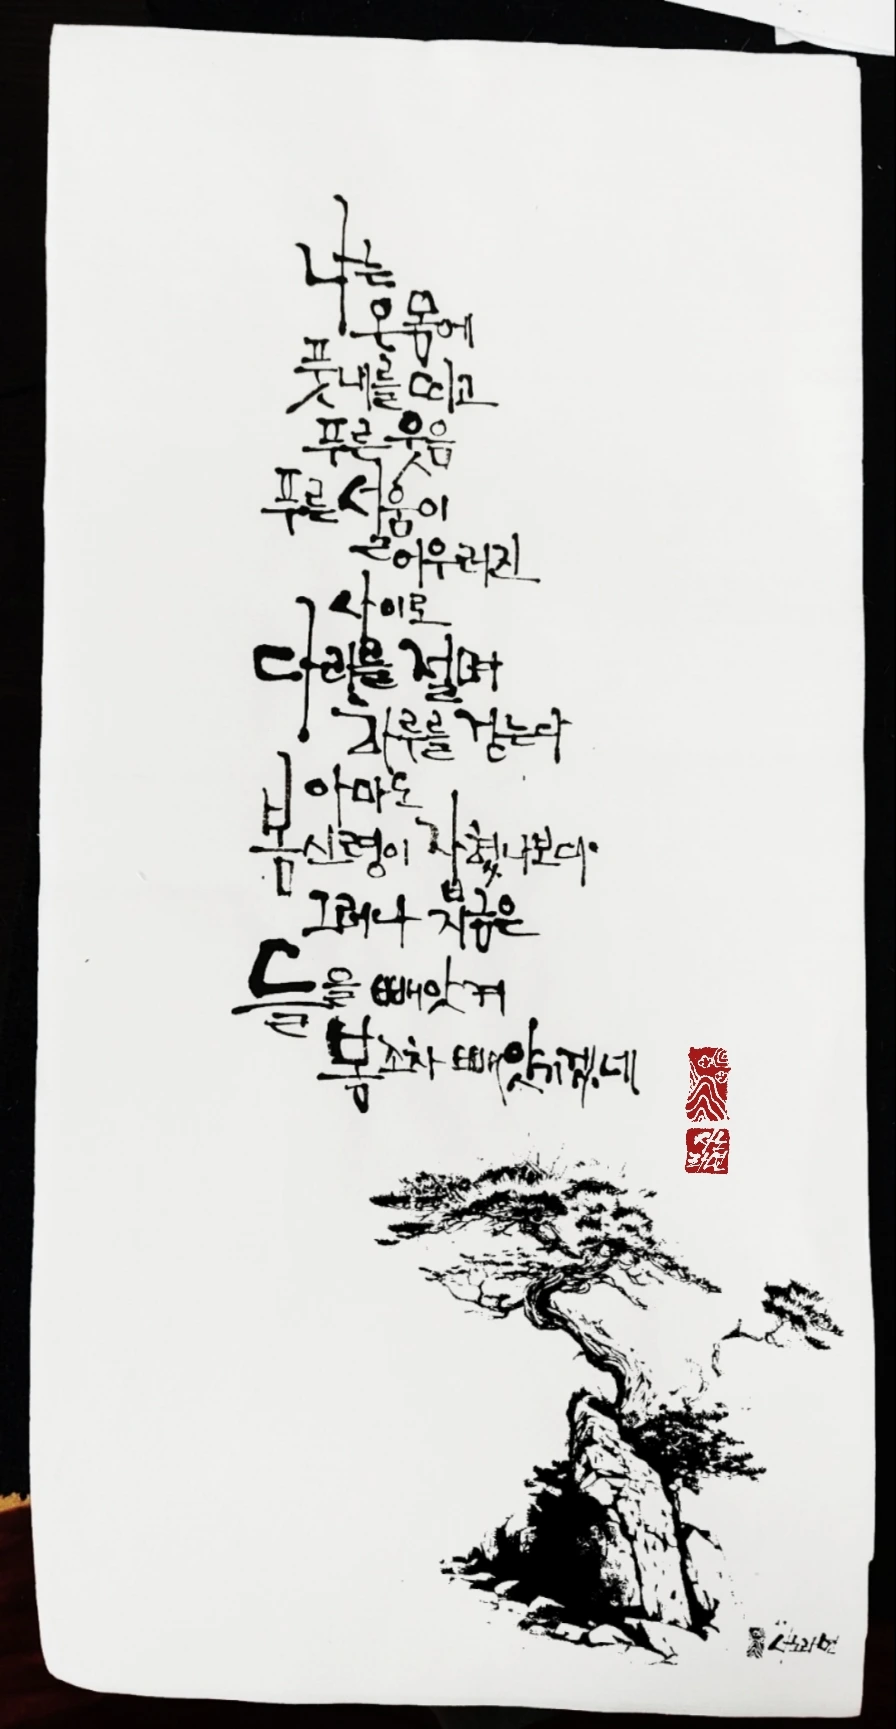 나는
온몸에
풋내를 띠고
푸른 웃음
푸른 서움이
어우러진
사이로
다리를 절며
하루를 걷는다
아마도
봄 신령이 잡혔나보다
그러나 지금은
들을 빼앗겨
봄조차 빼앗기겠네